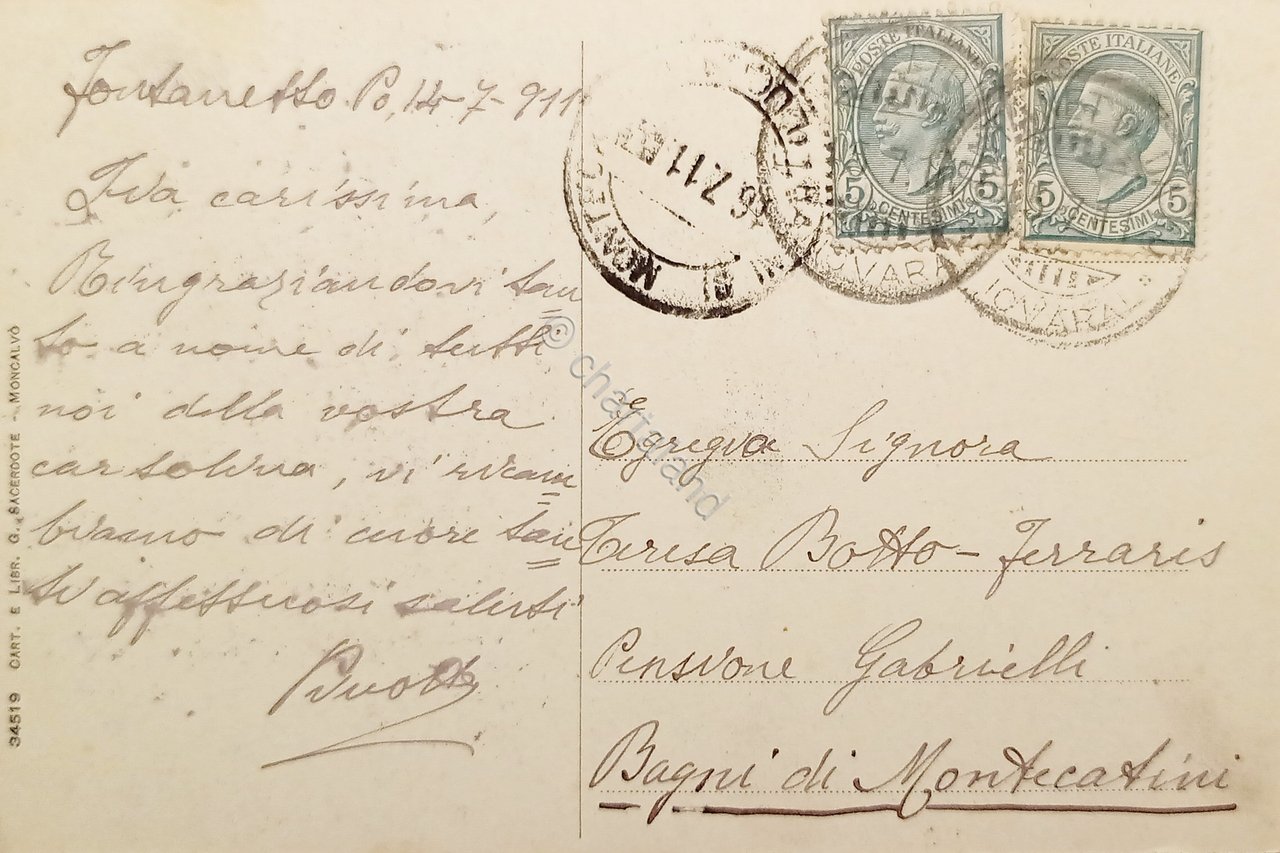 Fontanetto Po, 14-7-911
Zia carissima,
Ringraziandovi tan
to a nome di tutti
noi della vostra
cartolina, vi ricam
biamo di cuore tan
ti affettuosi saluti
34519 CART. E LIBR. G. SACERDOTE - MONCALVO
POSTE ITALIANE
5 CENTESIMI 5
POSTE ITALIANE
5 CENTESIMI 5
16.7.11
NOVARA
NOVARA
Egregia Signora
Teresa Botto-Ferraris
Pensione Gabrielli
Bagni di Montecatini
© chartaland